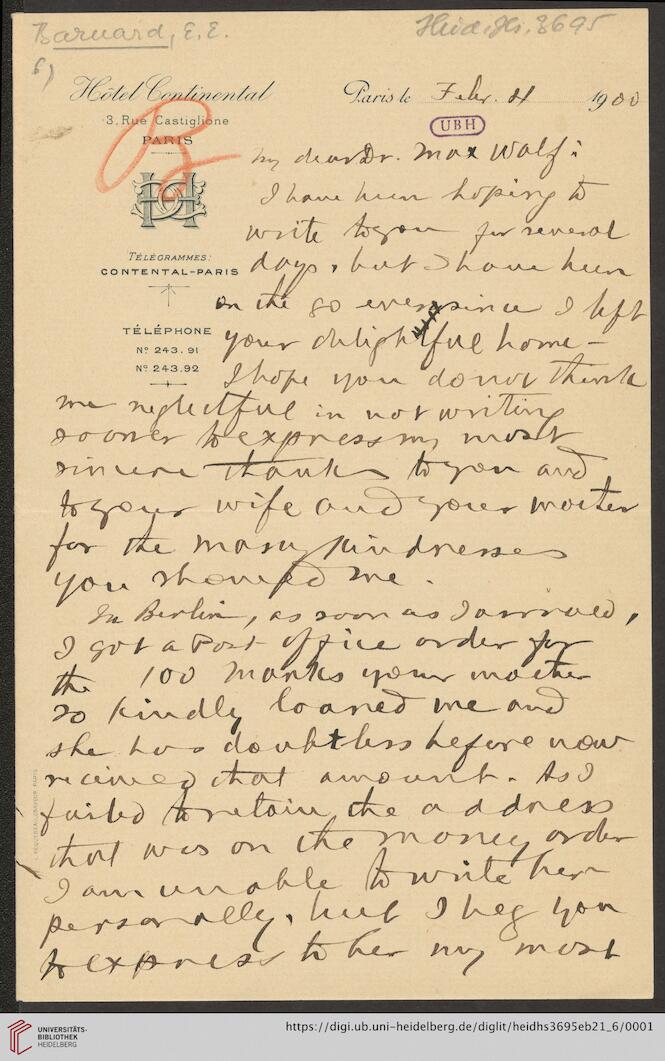 Barnard, E. E.
Heid. Hs. 3695
6)
Hôtel Continental
3, Rue Castiglione
PARIS
Paris le Febr. 4 1900
UBH
B
TÉLÉGRAMMES:
CONTENTAL-PARIS
TÉLÉPHONE
Nº 243.91
Nº 243.92
My dear Dr. Max Wolf:
I have been hoping to
write to you for several
days, but I have been
on the go ever since I left
your delightful home –
I hope you do not think
me neglectful in not writing
sooner to express my most
sincere thanks to you and
to your wife and your mother
for the many kindnesses
you showed me.
In Berlin, as soon as I arrived,
I got a Post office order for
the 100 Marks your mother
so kindly loaned me and
she has doubtless before now
received that amount. As I
failed to retain the address
that was on the money order
I am unable to write her
personally, but I beg you
to express to her my most
UNIVERSITÄTS-
BIBLIOTHEK
HEIDELBERG
https://digi.ub.uni-heidelberg.de/diglit/heidhs3695eb21_6/0001